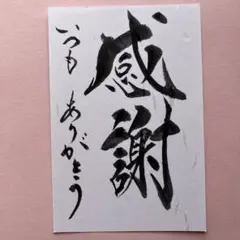 感謝
いつも ありがとう